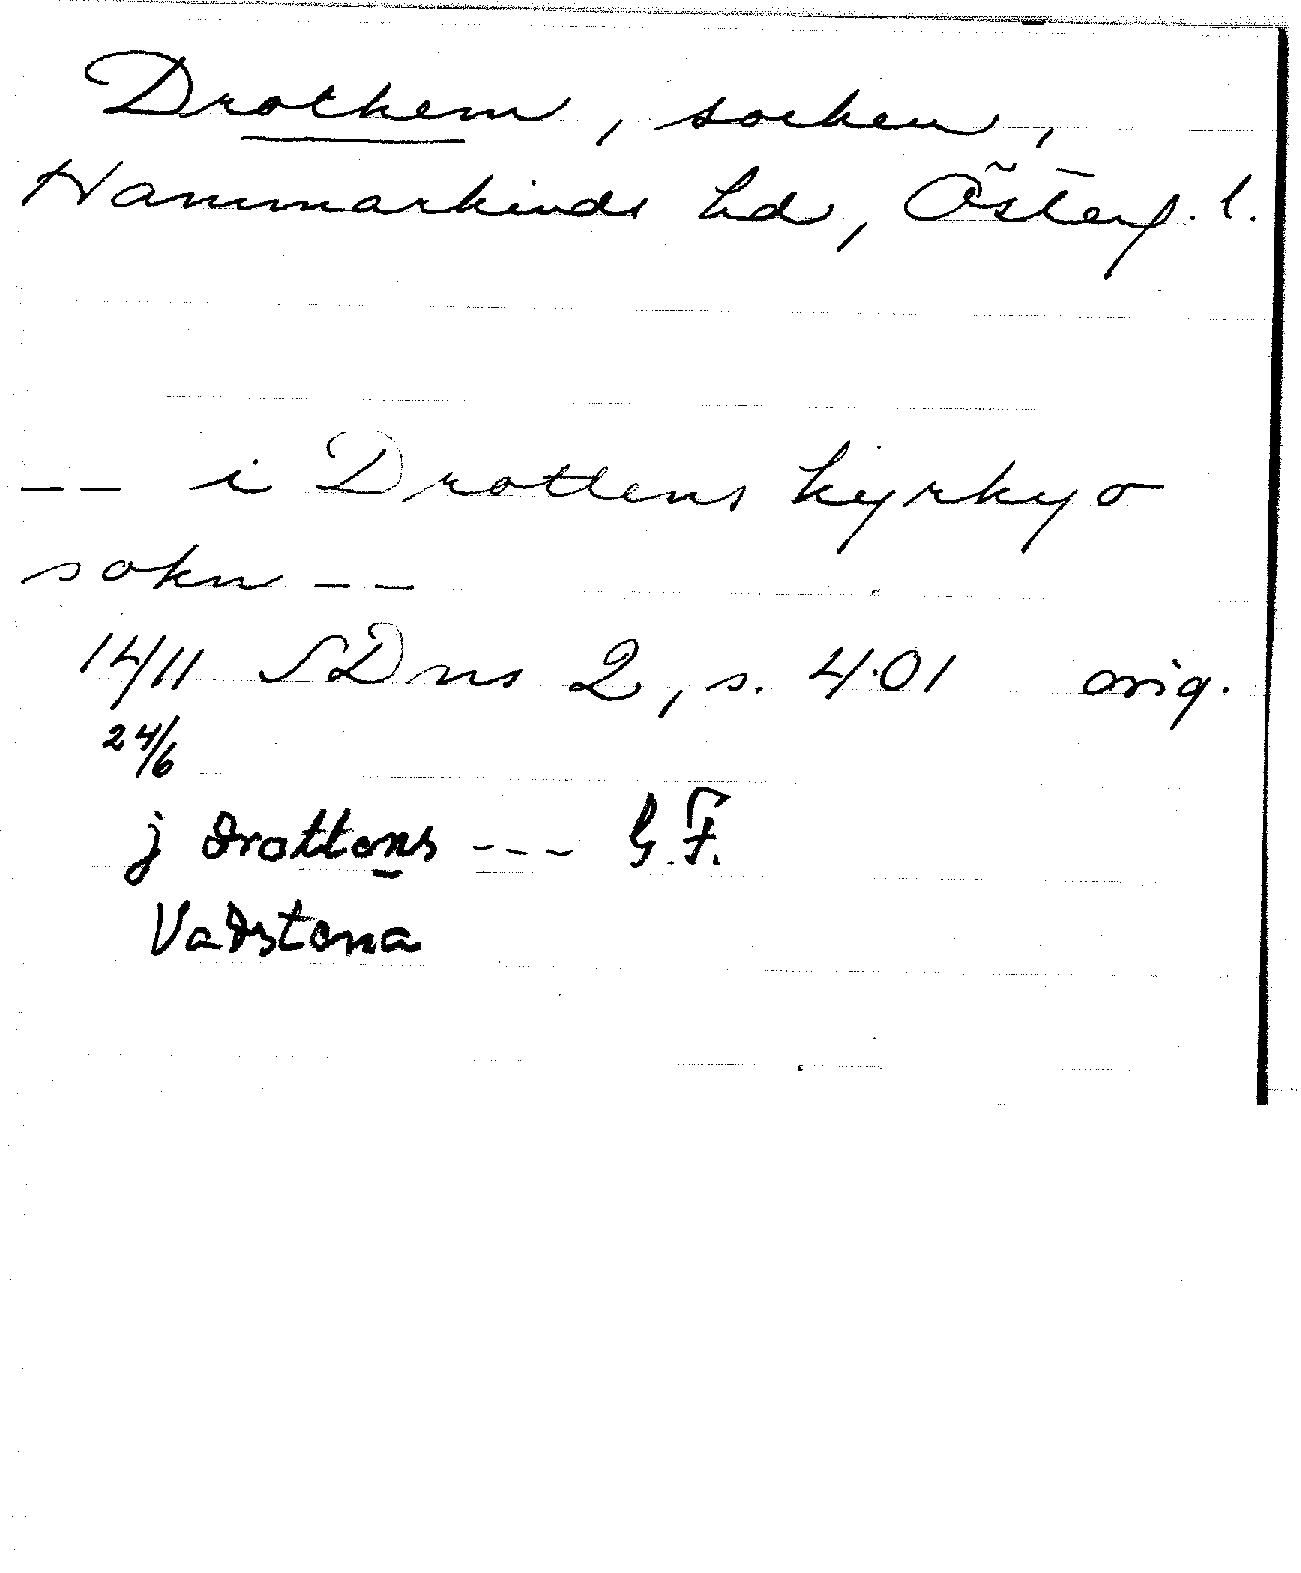 Drothem, socken,
Hammarkinds hd, Österg. l.
-- i Drottens kyrkyo
sokn --
14/11 SDns 2, s. 401 orig.
24/6
j drottens --- G.F.
Vadstena